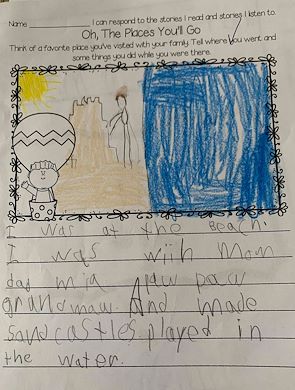 Name I can respond to the stories I read and stories I listen to.
Oh, The Places You'll Go
Think of a favorite place you've visited with your family. Tell where you went and
some things you did while you were there.
I was at the Beach.
I was with Mom
dad mia paw paw
grandmaw And made
sand castles played in
the water.